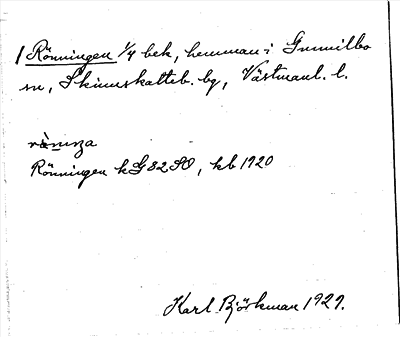 1 Rönningen 1/4 bek, hemman i Gunnilbo
sn, Skinnskatteb. bg, Västmanl. l.
Rönningen kG82SO, kb 1920
Karl Björkman 1929.